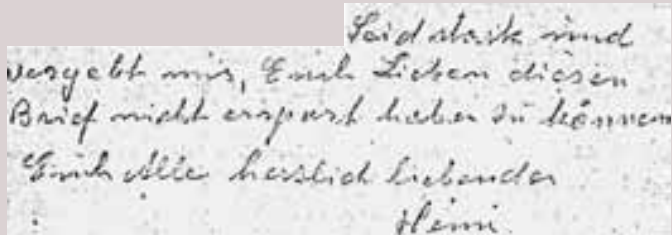 Seid stark und
vergebt mir, Euch Lieben diesen
Brief nicht erspart haben zu können
Euch Alle herzlich liebender
Heini